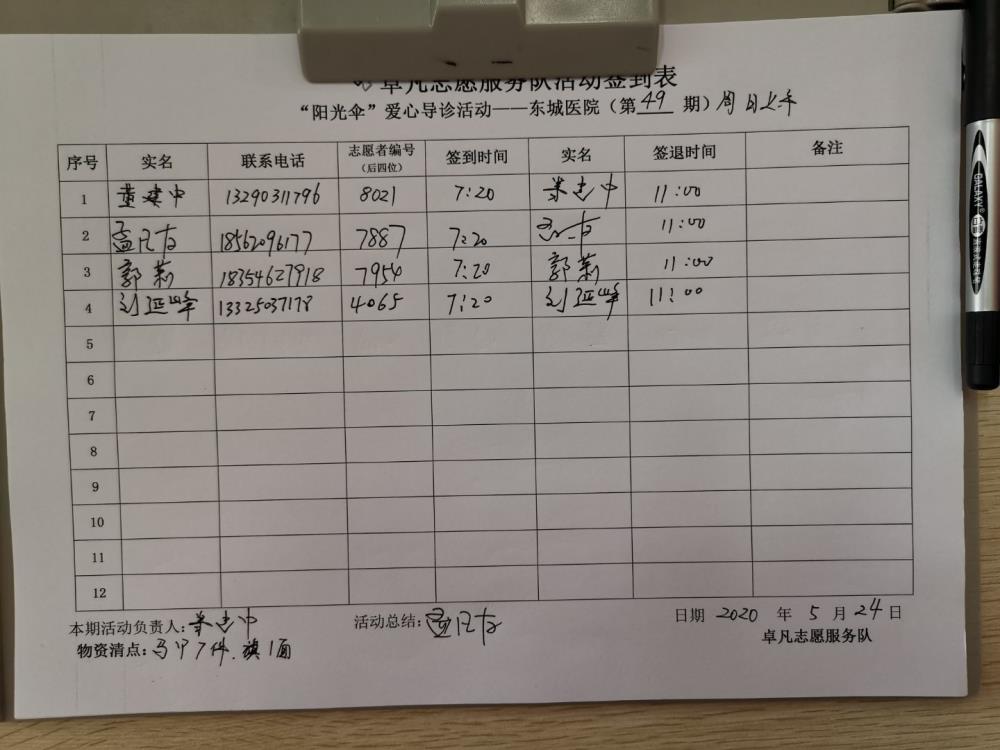 卓凡志愿服务队活动签到表
“阳光伞”爱心导诊活动——东城医院（第49期）周日上午
序号 实名 联系电话 志愿者编号（后四位） 签到时间 实名 签退时间 备注
1 董建中 13290311796 8021 7:20 11:00
2 孟凡友 18562096177 7887 7:20 11:00
3 郭莉 18354627918 7954 7:20 郭莉 11:00
4 刘延峰 13325037178 4065 7:20 刘延峰 11:00
5
6
7
8
9
10
11
12
本期活动负责人： 活动总结：孟凡友 日期 2020 年 5 月 24 日
物资清点：马甲7件、旗1面 卓凡志愿服务队